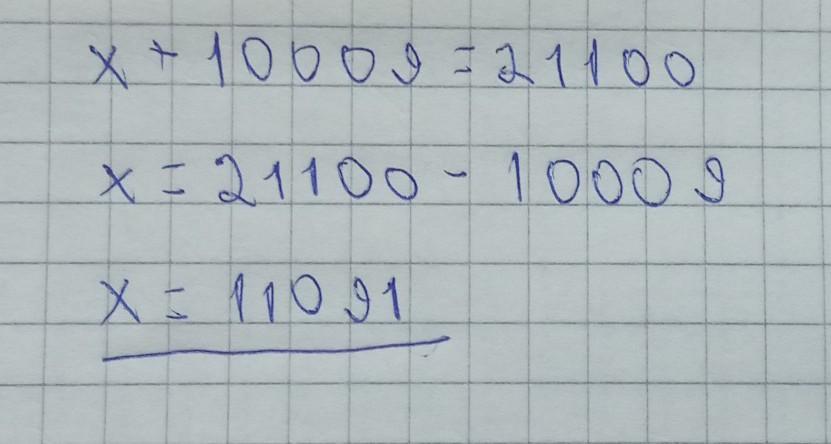 x + 10009 = 21100
x = 21100 - 10009
x = 11091